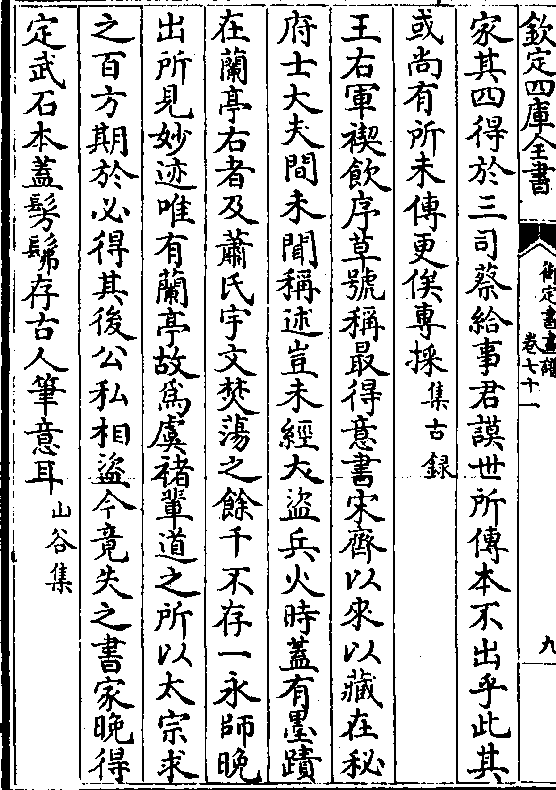 欽定四庫全書
御定書畫譜
卷七十一
九
家其四得於三司蔡給事君謨世所傳本不出乎此其
或尚有所未傳更俟專採集古録
王右軍禊飲序草號稱最得意書宋齊以來以藏在秘
府士大夫間未聞稱述豈未經大盜兵火時蓋有墨蹟
在蘭亭右者及蕭氏宇文焚蕩之餘千不存一永師晚
出所見妙迹唯有蘭亭故為虞褚輩道之所以太宗求
之百方期於必得其後公私相盜今竟失之書家晚得
定武石本蓋髣髴存古人筆意耳山谷集